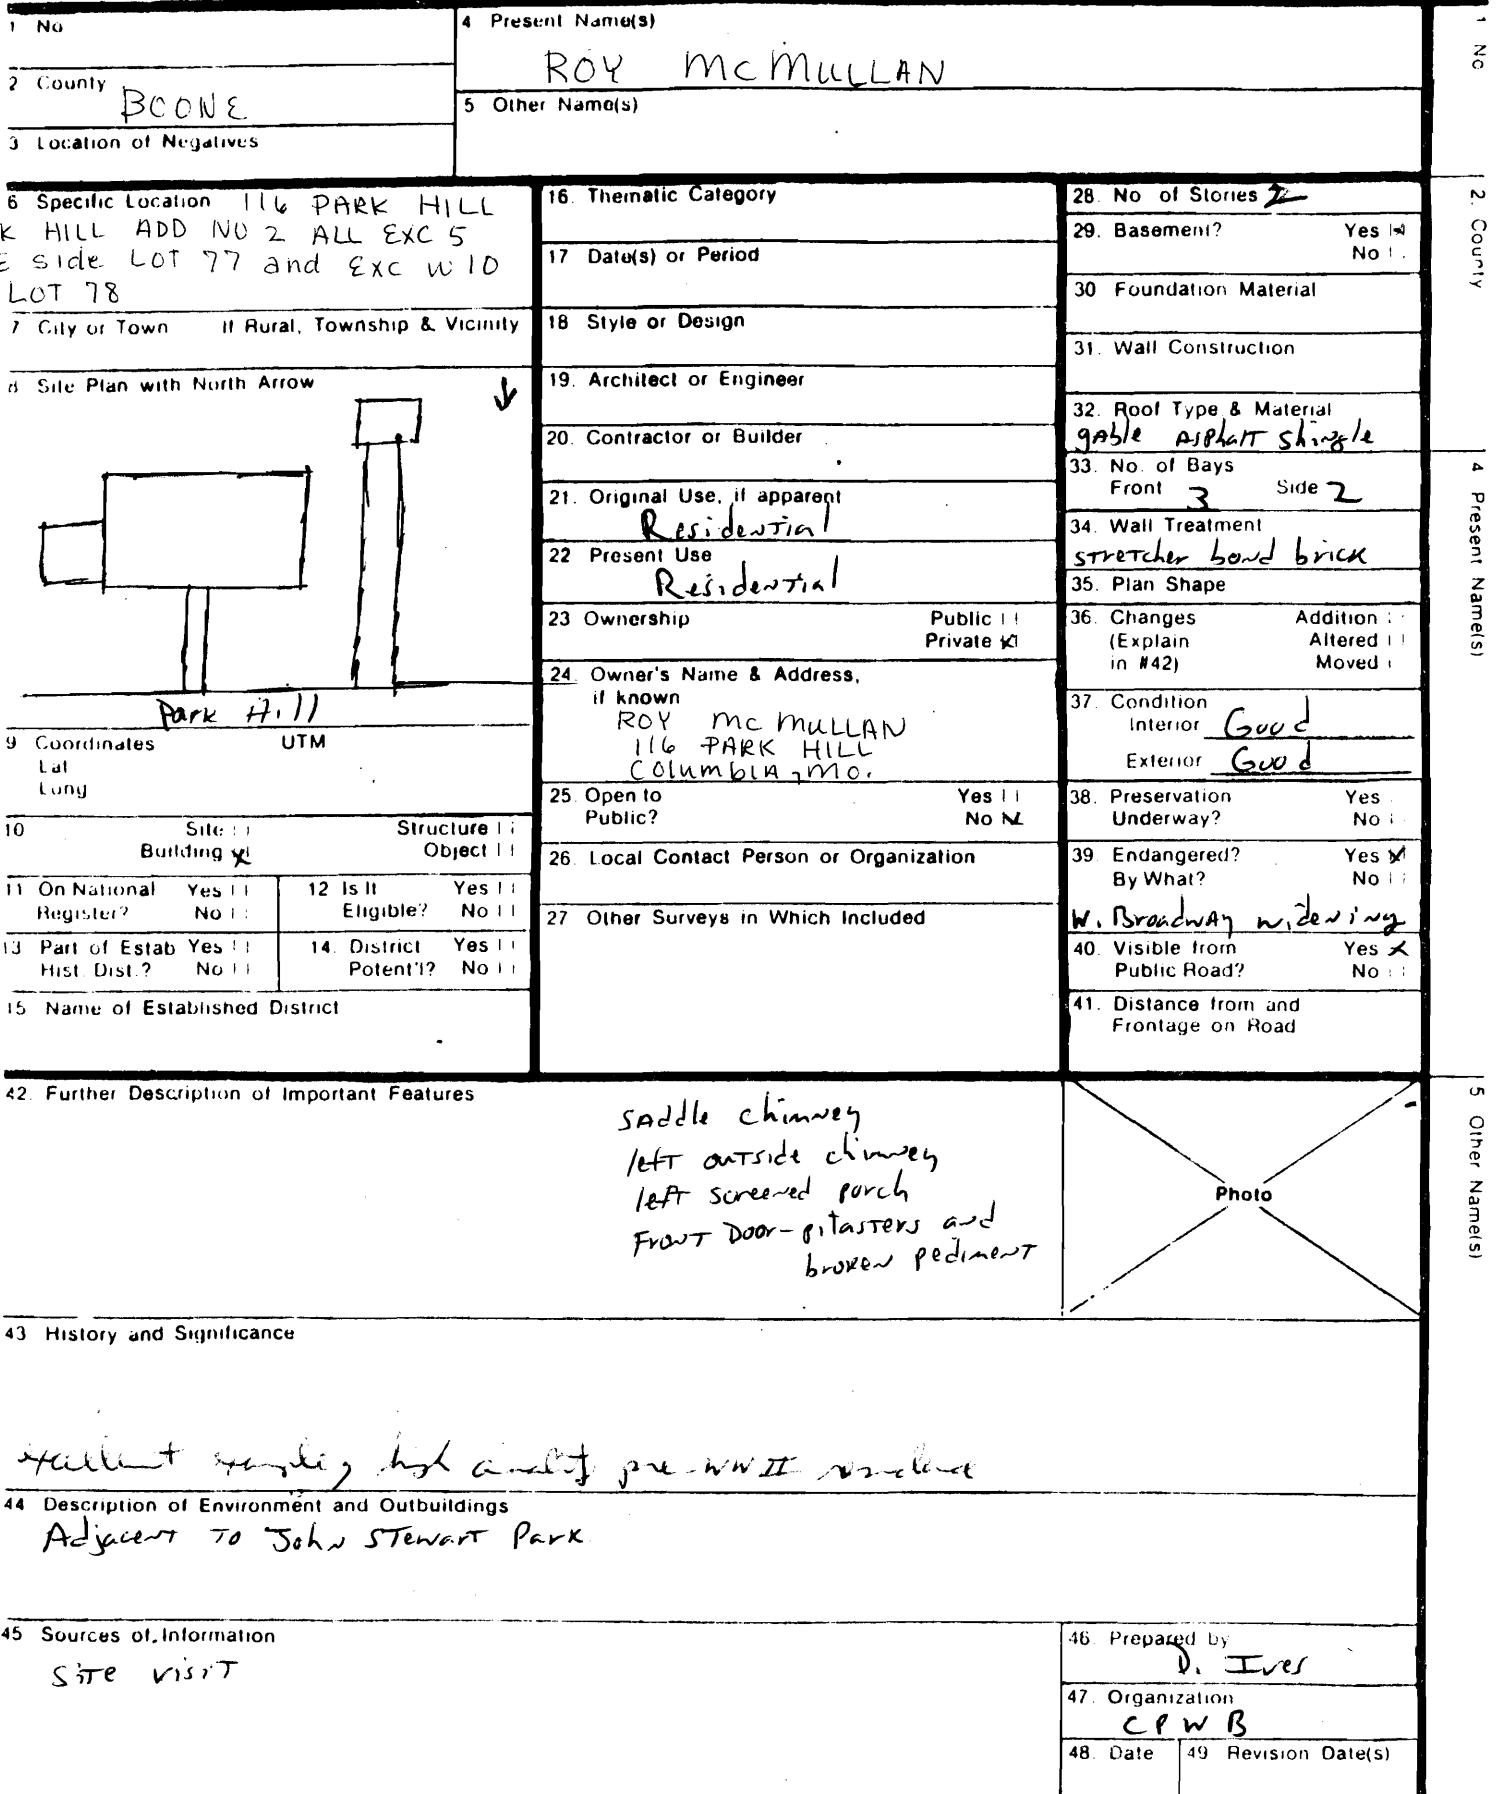 1 No
4 Present Name(s)
ROY McMULLAN
2 County
BOONE
5 Other Name(s)
3 Location of Negatives
6 Specific Location 116 PARK HILL
K HILL ADD NO 2 ALL EXC 5
E side LOT 77 and EXC W 10
LOT 78
7 City or Town If Rural, Township & Vicinity
8 Site Plan with North Arrow
Park Hill
9 Coordinates UTM
Lat
Long
10 Site
Structure
Building X
Object
11 On National Register? Yes No
12 Is It Eligible? Yes No
13 Part of Estab Hist. Dist.? Yes No
14. District Potent'l? Yes No
15 Name of Established District
16. Thematic Category
17 Date(s) or Period
18 Style or Design
19. Architect or Engineer
20. Contractor or Builder
21. Original Use, if apparent
Residential
22 Present Use
Residential
23 Ownership Public
Private X
24. Owner's Name & Address,
if known
ROY McMULLAN
116 PARK HILL
COlumbIA, MO.
25. Open to Yes
Public? No
26. Local Contact Person or Organization
27 Other Surveys in Which Included
28. No of Stories 2
29. Basement? Yes
No
30 Foundation Material
31. Wall Construction
32. Roof Type & Material
gAble Asphalt shingle
33. No. of Bays
Front 3 Side 2
34. Wall Treatment
stretcher bond brick
35. Plan Shape
36. Changes Addition
(Explain Altered
in #42) Moved
37. Condition
Interior Good
Exterior Good
38. Preservation Yes
Underway? No
39. Endangered? Yes X
By What? No
W. Broadway widening
40. Visible from Yes X
Public Road? No
41. Distance from and
Frontage on Road
42. Further Description of Important Features
SAddle chimney
left outside chimney
left screened porch
Front Door-pilasters and
broken pediment
Photo
43 History and Significance
excellent example, high quality pre-WWII residence
44 Description of Environment and Outbuildings
Adjacent To John Stewart Park
45 Sources of Information
Site visit
46. Prepared by
D. Ives
47. Organization
CPWB
48. Date
49 Revision Date(s)
1 No
2. County
4 Present Name(s)
5 Other Name(s)